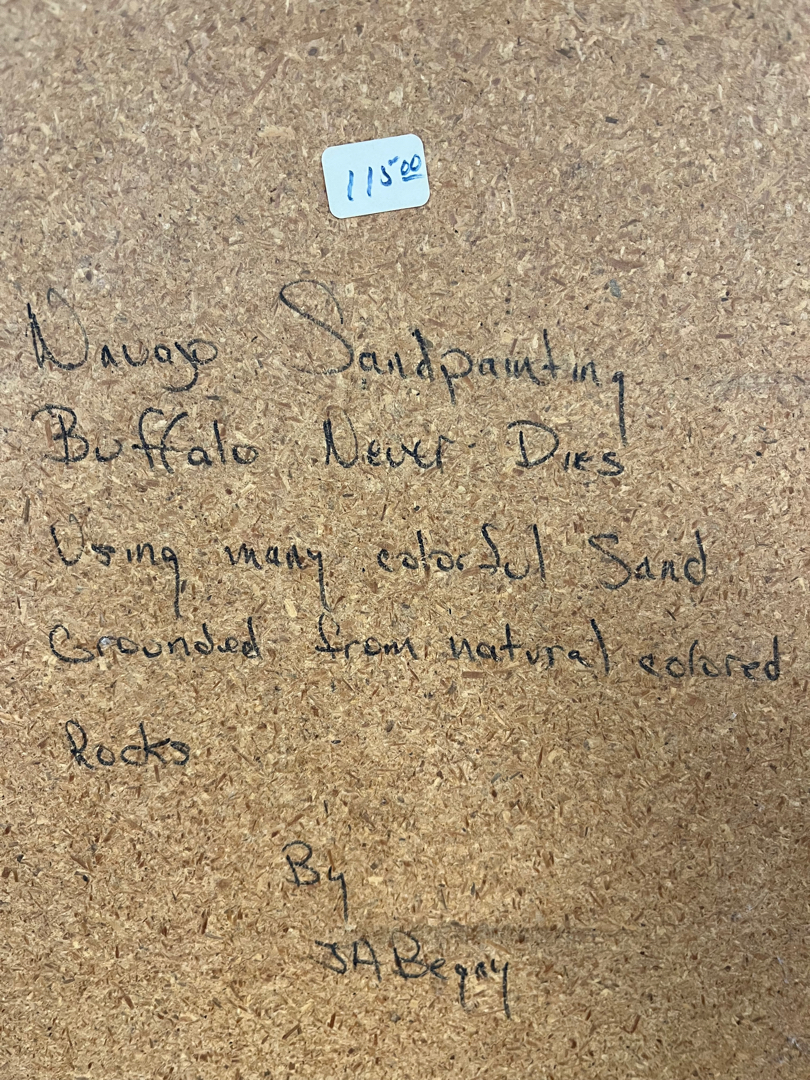 115⁰⁰
Navajo Sandpainting
Buffalo Never Dies
Using many colorful Sand
Grounded from natural colored
Rocks
By
JA Begay